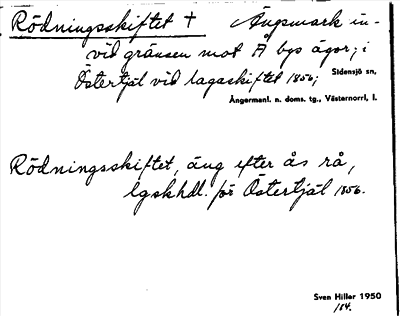 Rödningsskiftet + Ängsmark in-
vid gränsen mot Å bys ägor; i
Östertjäl vid lagaskiftet 1856;
Sidensjö sn,
Ångermanl. n. doms. tg., Västernorrl. l.
Rödningsskiftet, äng efter ås rå,
lgskhdl. för Östertjäl 1856.
Sven Hiller 1950
184.